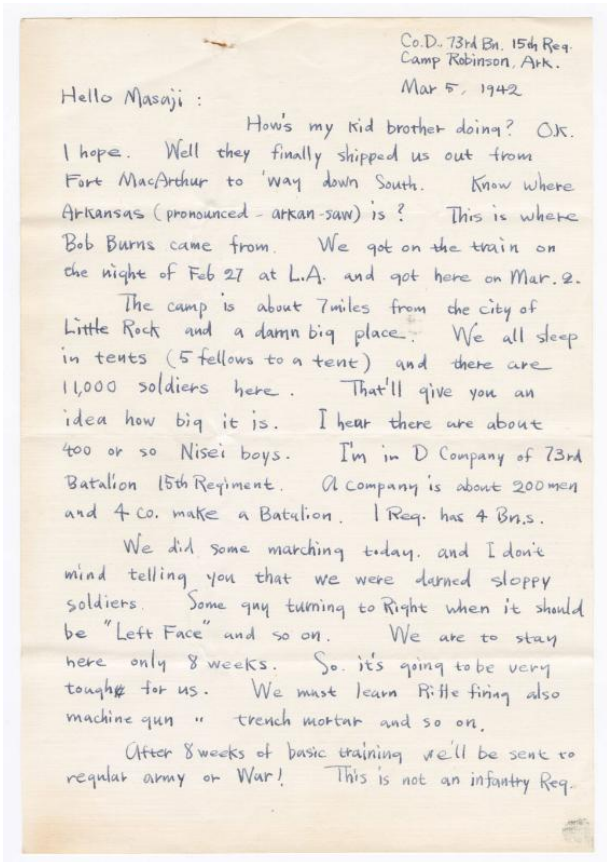 Co.D. 73rd Bn. 15th Reg.
Camp Robinson, Ark.
Mar 5, 1942
Hello Masaji :
How's my kid brother doing? OK.
I hope. Well they finally shipped us out from
Fort MacArthur to 'way down South. Know where
Arkansas (pronounced - arkan-saw) is? This is where
Bob Burns came from. We got on the train on
the night of Feb 27 at L.A. and got here on Mar. 2.
The camp is about 7 miles from the city of
Little Rock and a damn big place. We all sleep
in tents (5 fellows to a tent) and there are
11,000 soldiers here. That'll give you an
idea how big it is. I hear there are about
400 or so Nisei boys. I'm in D Company of 73rd
Batalion 15th Regiment. A company is about 200 men
and 4 Co. make a Batalion. 1 Reg. has 4 Bn.s.
We did some marching today. and I don't
mind telling you that we were darned sloppy
soldiers. Some guy turning to Right when it should
be "Left Face" and so on. We are to stay
here only 8 weeks. So. it's going to be very
tough for us. We must learn Rifle firing also
machine gun " trench mortar and so on.
After 8 weeks of basic training we'll be sent to
regular army or War! This is not an infantry Reg.